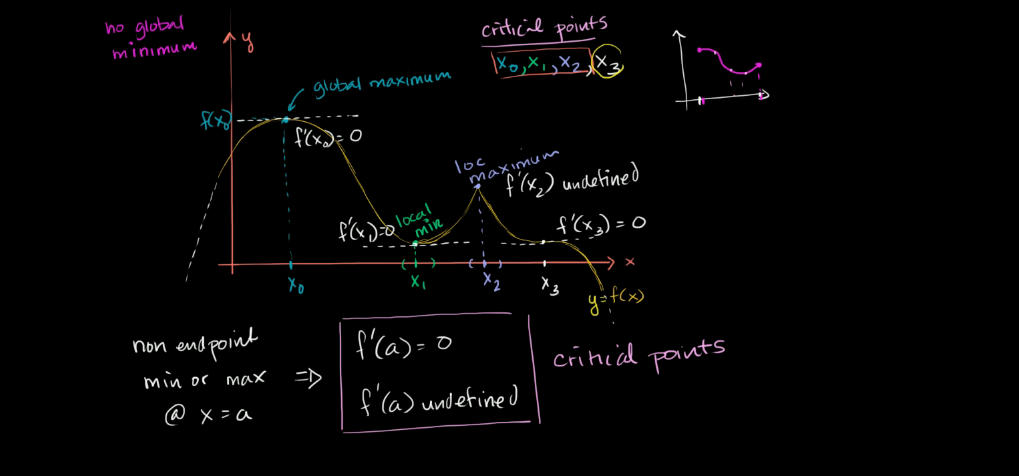 no global
minimum
y
critical points
x₀, x₁, x₂, x₃
global maximum
f(x₀)
f'(x₀) = 0
loc
maximum
f'(x₂) undefined
local
min
f'(x₁)=0
f'(x₃) = 0
x
x₀
x₁
x₂
x₃
y=f(x)
non endpoint
min or max
@ x = a
⇒
f'(a) = 0
f'(a) undefined
critical points